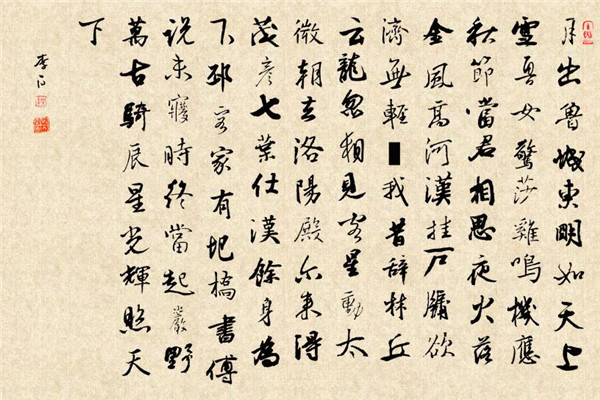 月出魯城東明如天上
雪魯女驚莎雞鳴機應
秋節當君相思夜火落
金風高河漢挂戶牖欲
濟無輕我昔辭林丘
云龍忽相見客星動太
微朝去洛陽殿尔来得
茂彥七葉仕漢餘身為
下邳客家有圯橋書傅
說未時終當起巖野
萬古騎辰星光輝照天
下
李白